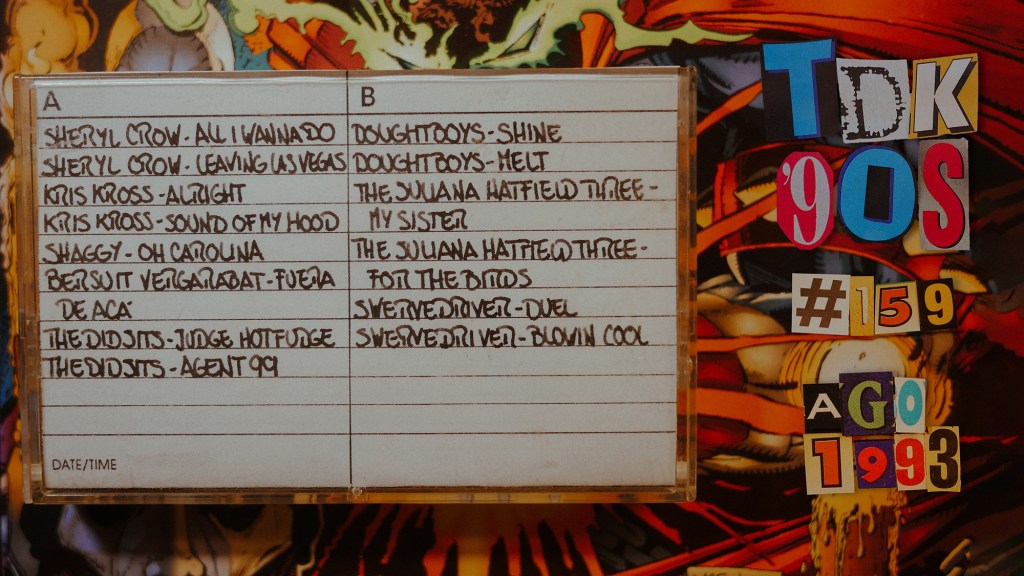 A
SHERYL CROW - ALL I WANNA DO
SHERYL CROW - LEAVING LAS VEGAS
KRIS KROSS - ALRIGHT
KRIS KROSS - SOUND OF MY HOOD
SHAGGY - OH CAROLINA
BERSUIT VERGARABAT - FUERA
DE ACÁ
THE DIDJITS - JUDGE HOT FUDGE
THE DIDJITS - AGENT 99
DATE/TIME
B
DOUGHTBOYS - SHINE
DOUGHTBOYS - MELT
THE JULIANA HATFIELD THREE -
MY SISTER
THE JULIANA HATFIELD THREE -
FOR THE BIRDS
SWERVEDRIVER - DUEL
SWERVEDRIVER - BLOWIN COOL
TDK
'90S
#159
AGO
1993